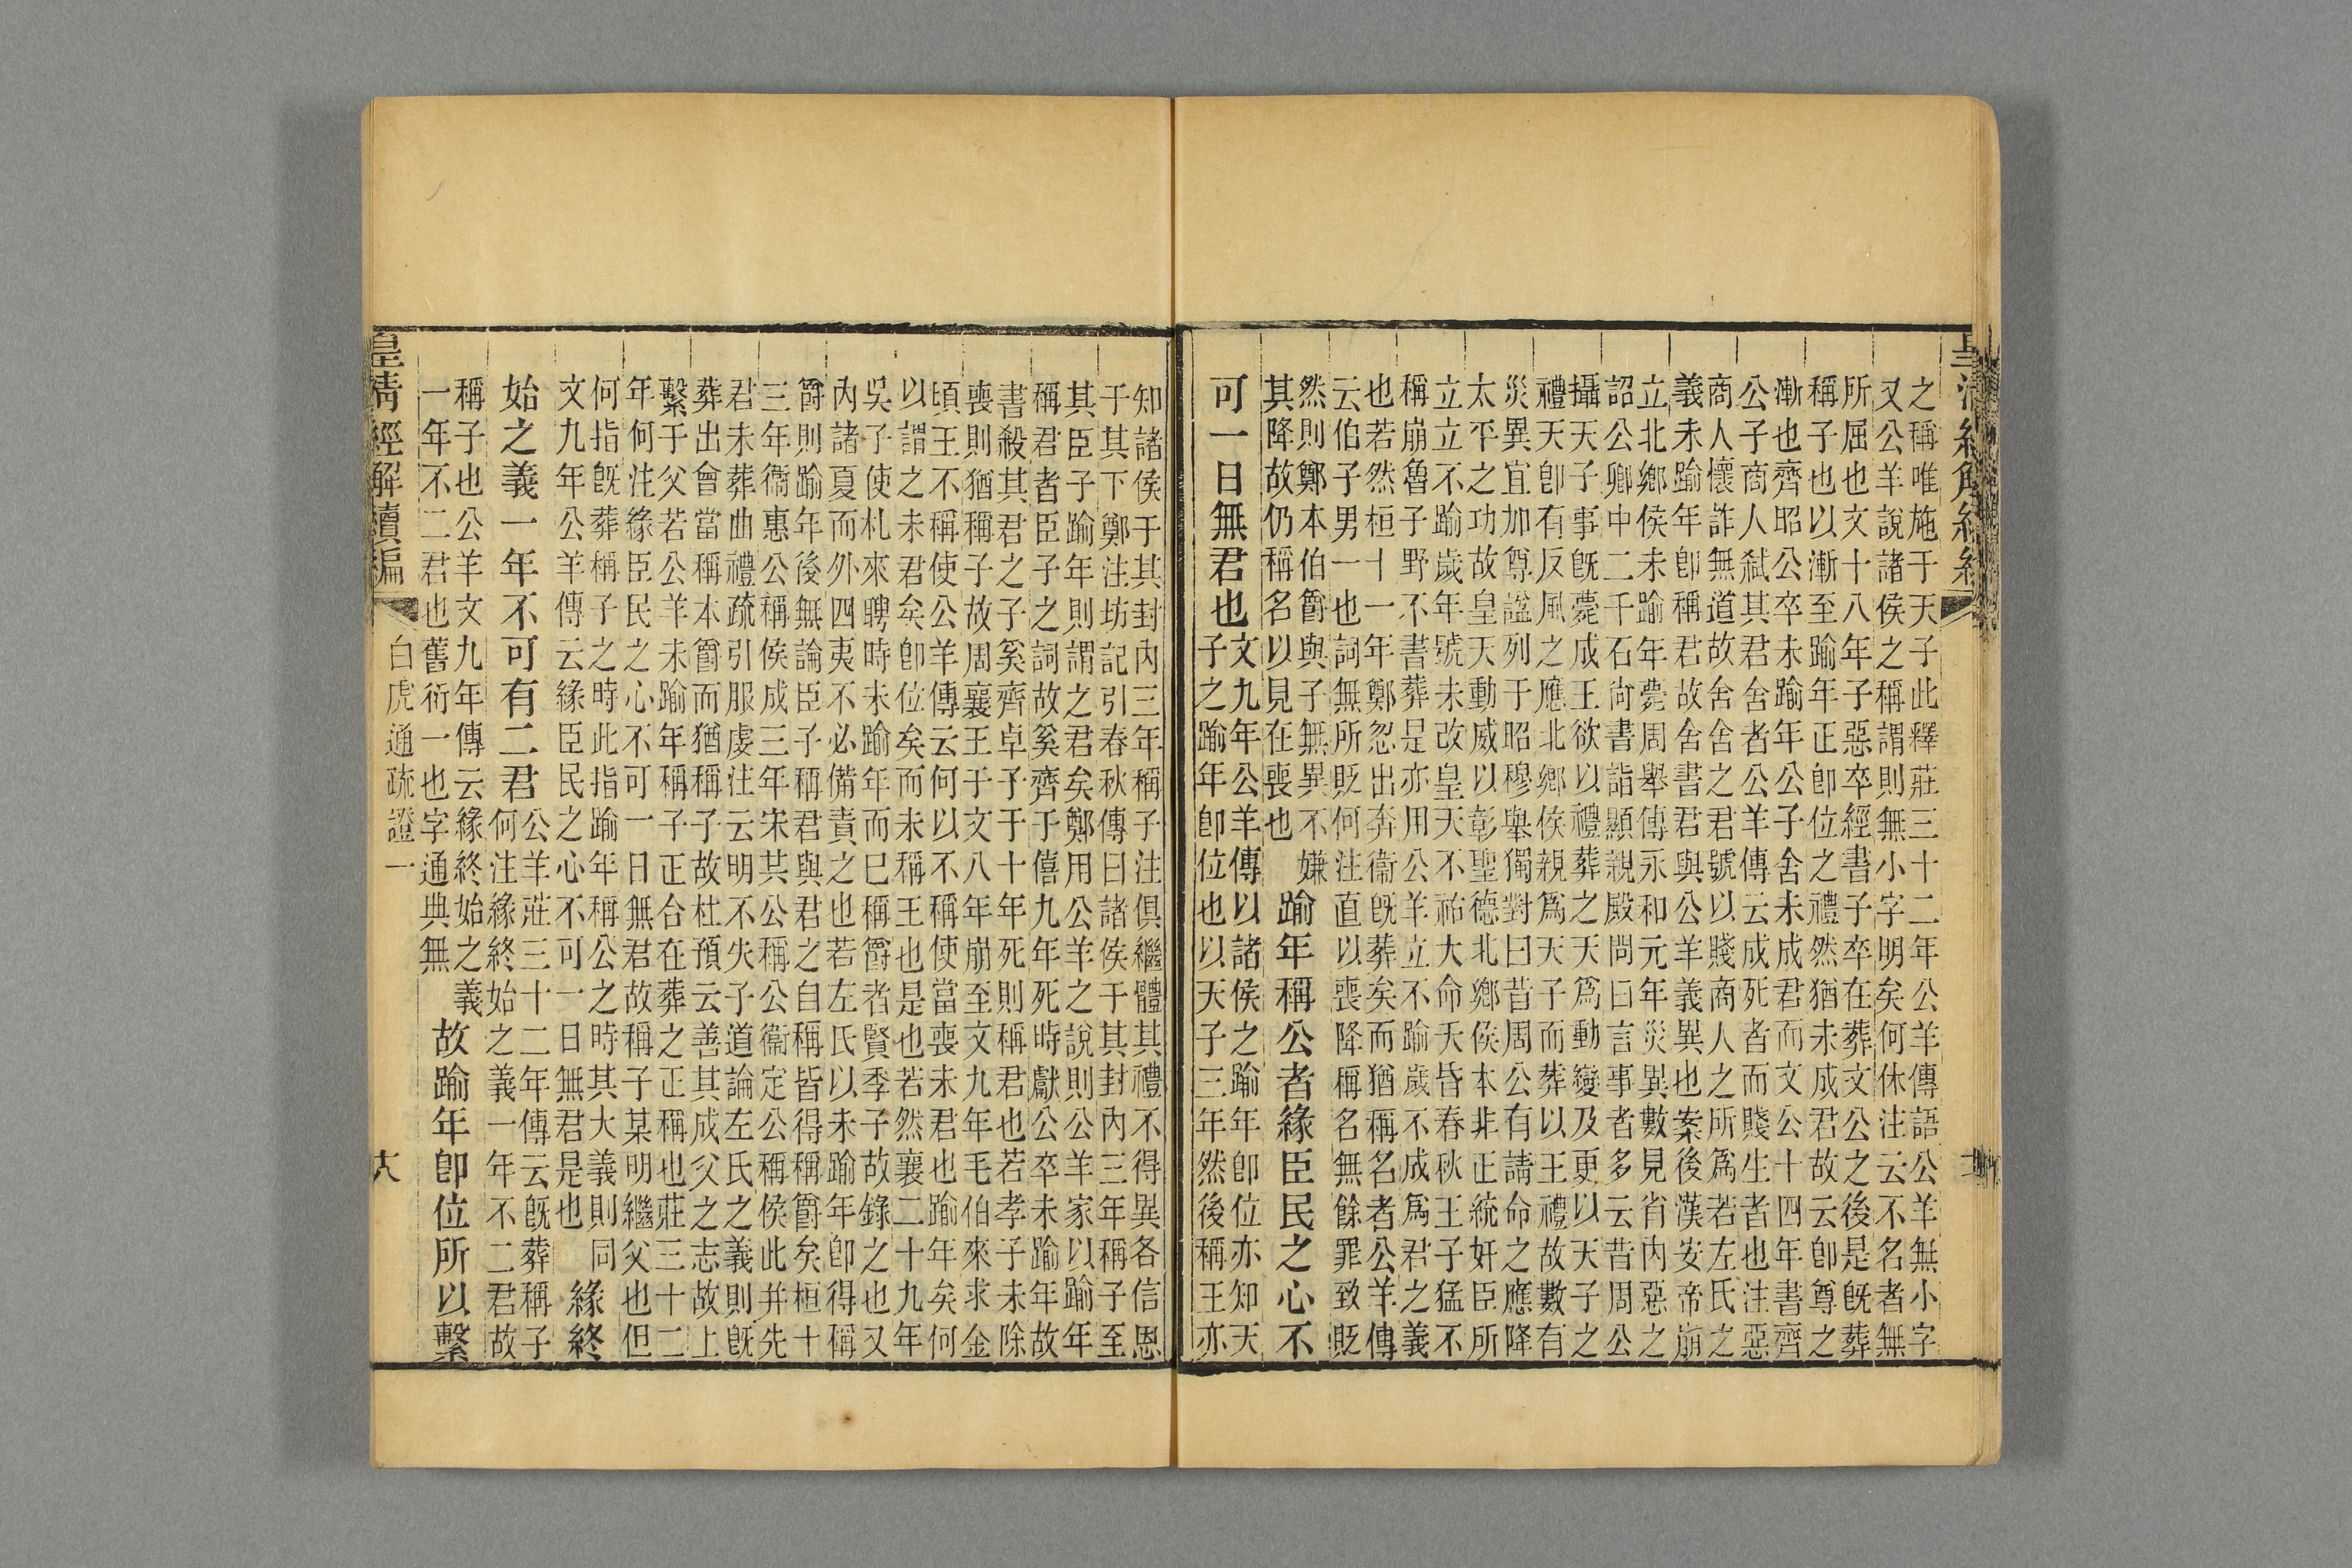 之稱唯施于天子此釋莊三十二年公羊傳語公羊無小字
又公羊說諸侯之稱謂則無小字明矣何休注云不名者無
所屈也文十八年子惡卒經書子卒在葬文公之後是旣葬
稱子也以漸至踰年正卽位之禮然猶未成君故云卽尊之
漸也齊昭公卒未踰年公子舍未成君而文公十四年書齊
公子商人弒其君舍者公羊傳云成死者而賤生者也注惡
商人懷詐無道故舍舍之君號以賤商人之所爲若左氏之
義未踰年卽稱君故舍書君與公羊義異也案後漢安帝崩
立北鄉侯未踰年薨周舉傳永和元年災異數見省內惡之
詔公卿中二千石尙書詣顯親殿問曰言事者多云昔周公
攝天子事旣薨成王欲以禮葬之天爲動變及更以天子之
禮天卽有反風之應北鄉侯親爲天子而葬以王禮故數有
災異宜加尊諡列于昭穆舉獨對曰昔周公有請命之應降
太平之功故皇天動威以彰聖德北鄉侯本非正統奸臣所
立立不踰歲年號未改皇天不祐大命夭昏春秋王子猛不
稱崩魯子野不書葬是亦用公羊立不踰歲不成爲君之義
也若然桓十一年鄭忽出奔衞旣葬矣而猶稱名者公羊傳
云伯子男一也詞無所貶何注直以喪降稱名無餘罪致貶
然則鄭本伯爵與子無異不嫌
其降故仍稱名以見在喪也
踰年稱公者緣臣民之心不
可一日無君也
文九年公羊傳以諸侯之踰年卽位亦知天
子之踰年卽位也以天子三年然後稱王亦
知諸侯于其封內三年稱子注俱繼體其禮不得異各信恩
于其下鄭注坊記引春秋傳曰諸侯于其封內三年稱子至
其臣子踰年則謂之君矣鄭用公羊之說則公羊家以踰年
稱君者臣子之詞故奚齊于僖九年死時獻公卒未踰年故
書殺其君之子奚齊卓子于十年死則稱君也若孝子未除
喪則猶稱子故周襄王于文八年崩至文九年毛伯來求金
頃王不稱使公羊傳云何以不稱使當喪未君也踰年矣何
以謂之未君矣卽位矣而未稱王也是也若然襄二十九年
吳子使札來聘時未踰年而已稱爵者賢季子故錄之也又
內諸夏而外四夷不必備責之也若左氏以未踰年卽得稱
爵則踰年後無論臣子稱君與君之自稱皆得稱爵矣桓十
三年衞惠公稱侯成三年宋共公稱公衞定公稱侯此并先
君未葬曲禮疏引服虔注云明不失子道論左氏之義則旣
葬出會當稱本爵而猶稱子故杜預云善其成父之志故上
繫于父若公羊未踰年稱子正合在葬之正稱也莊三十二
年何注緣臣民之心不可一日無君故稱子某明繼父也但
何指旣葬稱子之時此指踰年稱公之時其大義則同
文九年公羊傳云緣臣民之心不可一日無君是也
緣終
始之義一年不可有二君
公羊莊三十二年傳云旣葬稱子
何注緣終始之義一年不二君故
稱子也公羊文九年傳云緣終始之義
一年不二君也舊衍一也字通典無
故踰年卽位所以繫
皇清經解續編 白虎通疏證一 十八